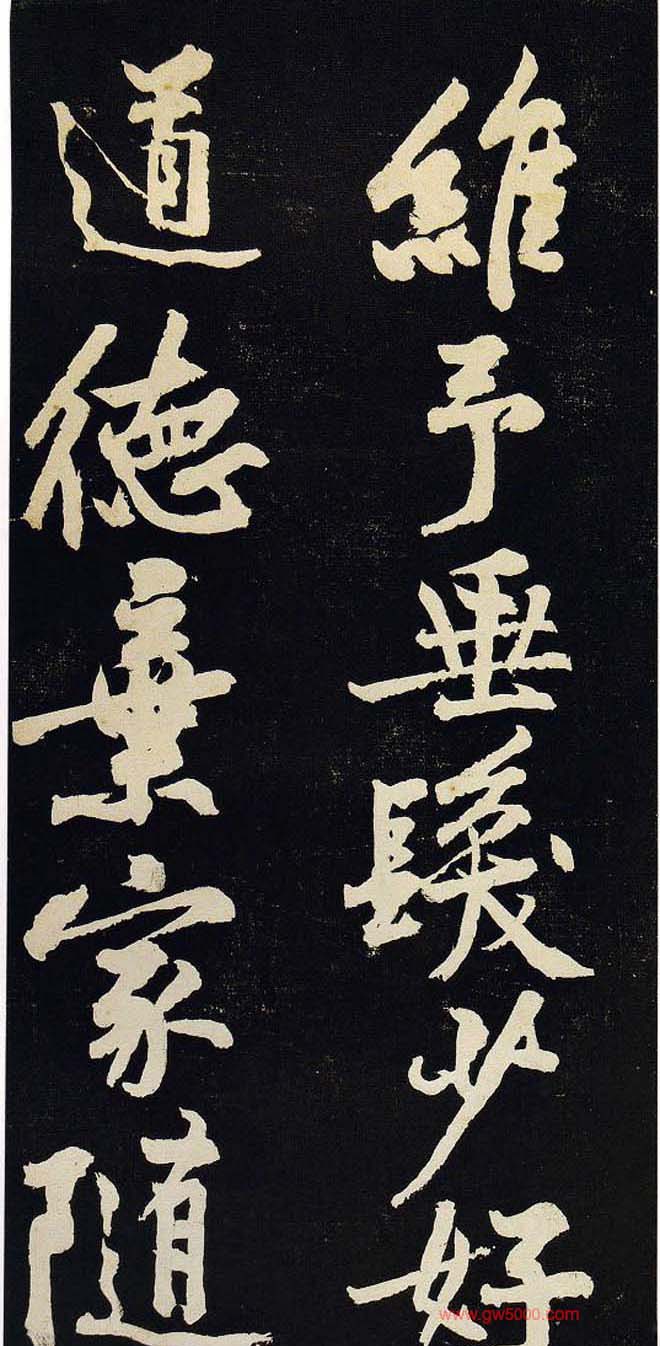 維予垂髮少好
道德棄家隨
www.gw5000.com